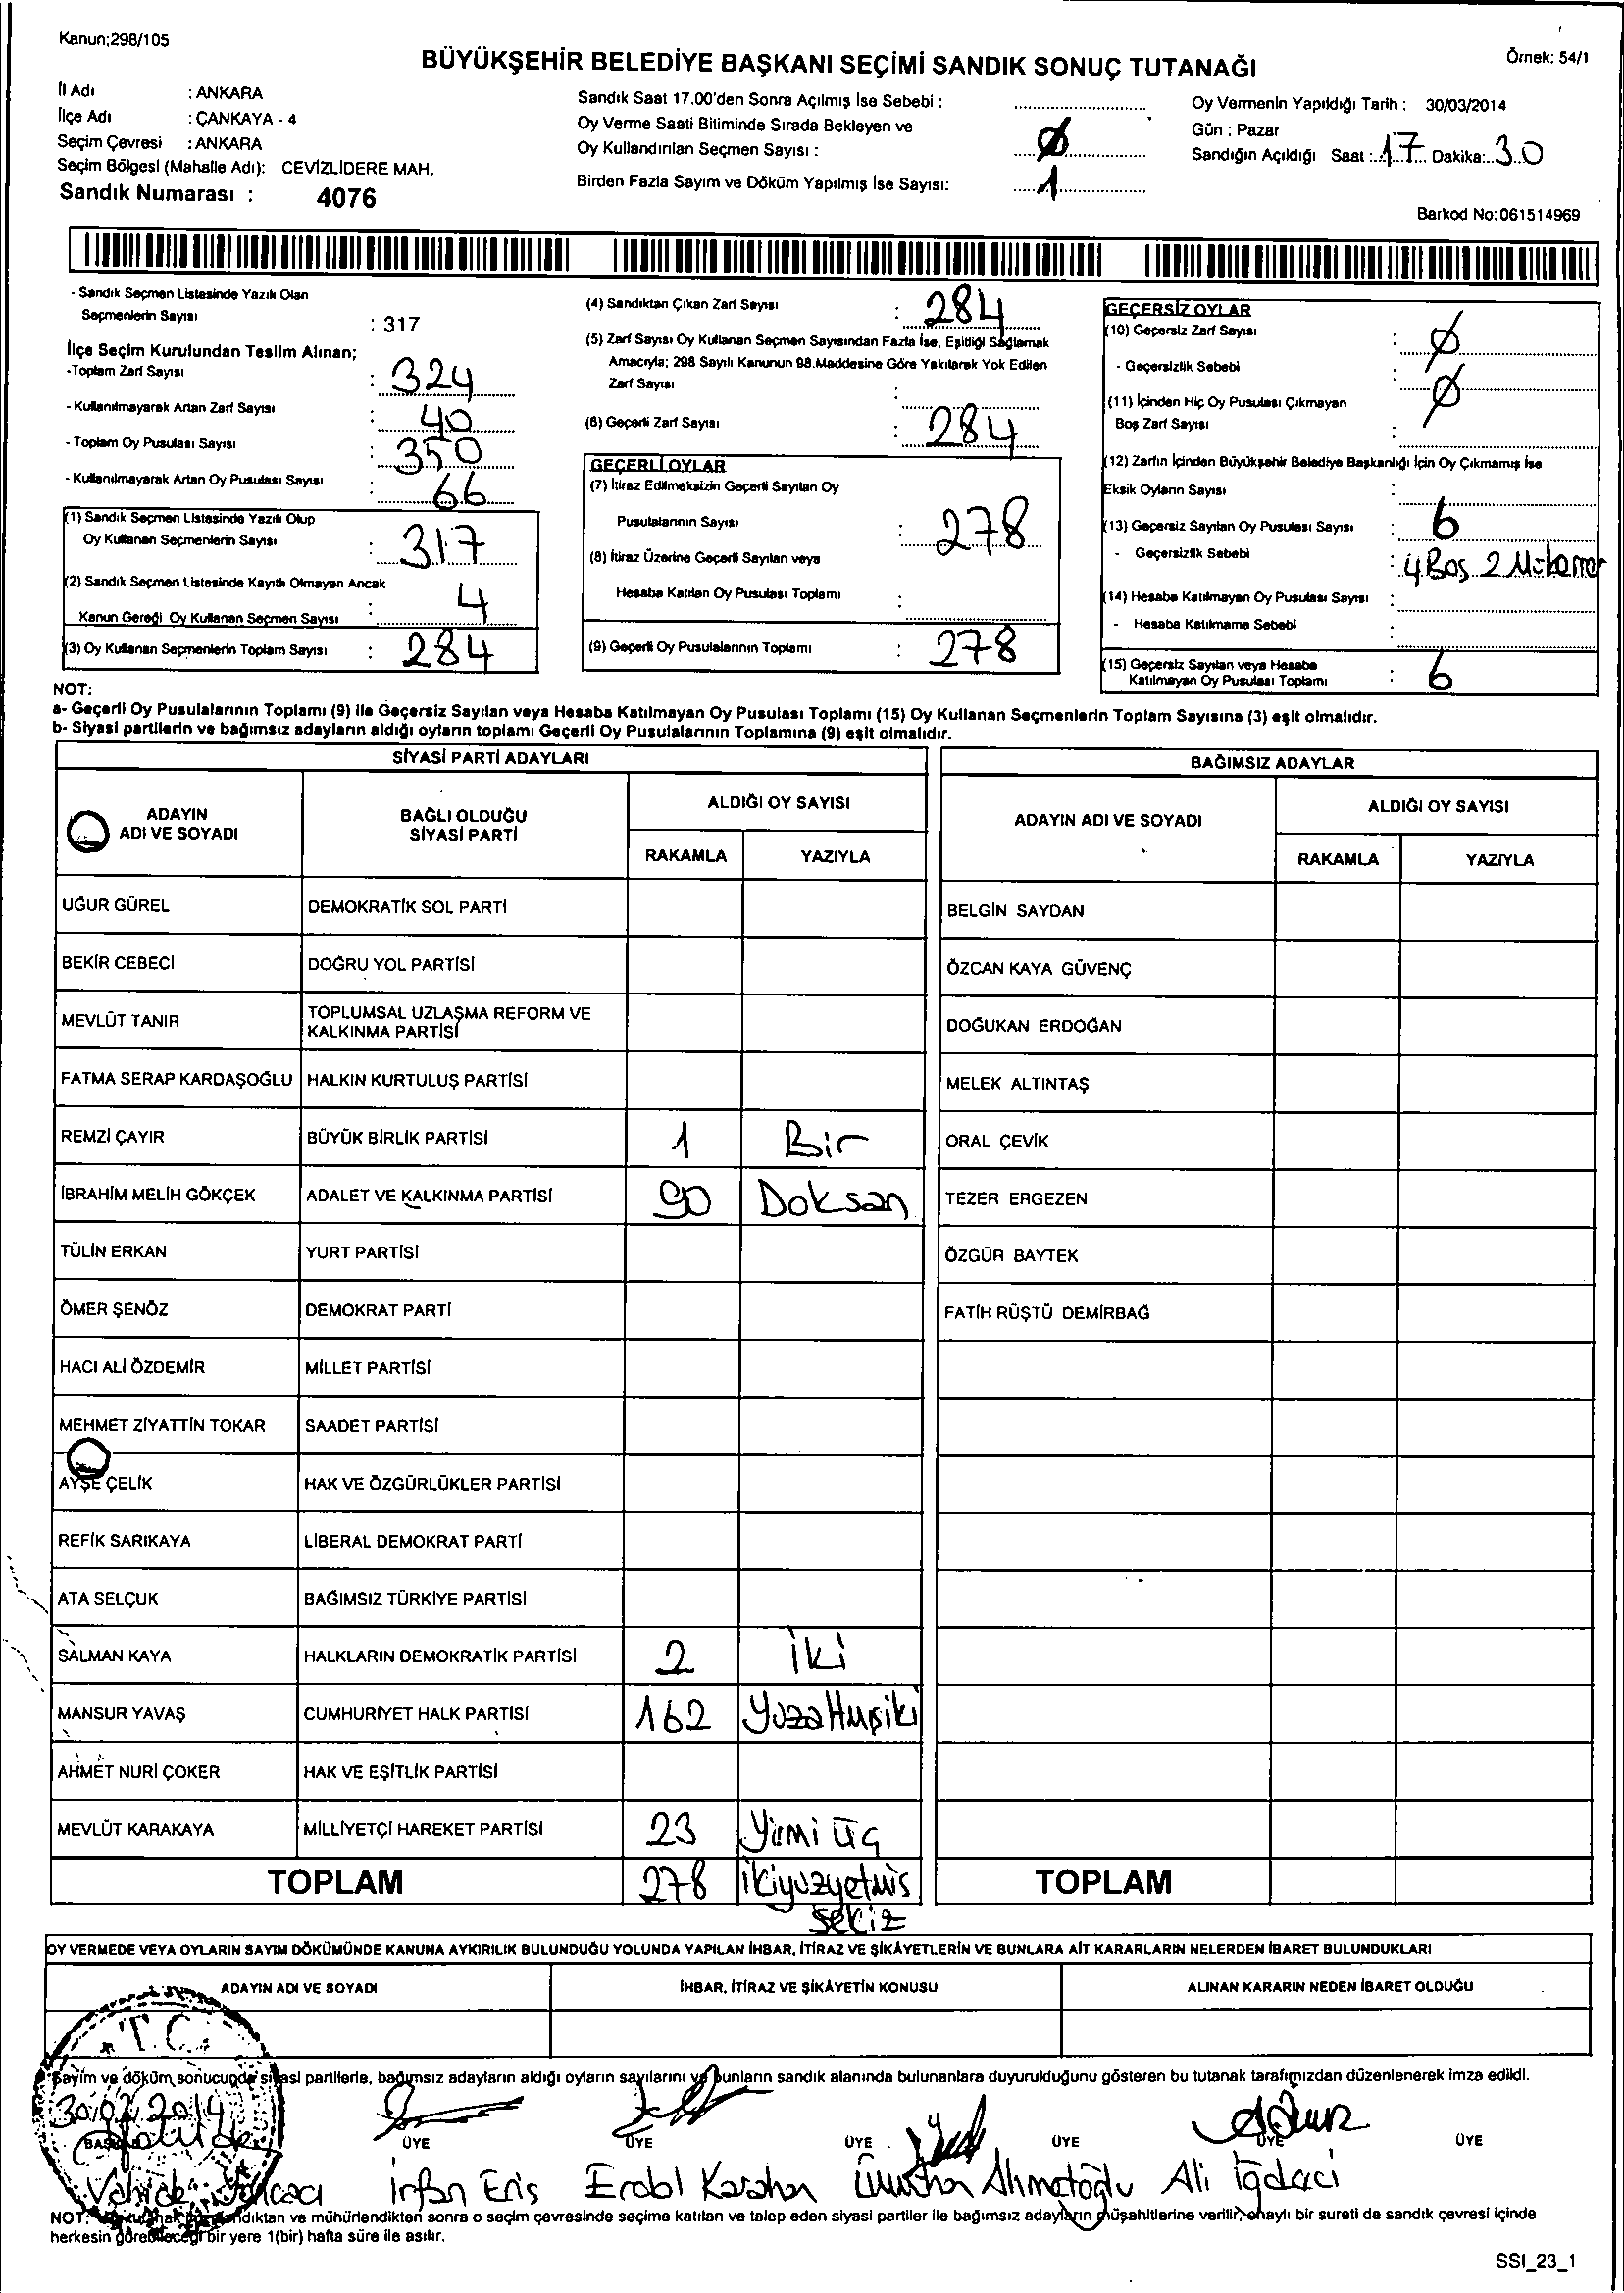 Kanun;298/105
BÜYÜKŞEHİR BELEDİYE BAŞKANI SEÇİMİ SANDIK SONUÇ TUTANAĞI
Örnek: 54/1
İl Adı : ANKARA
İlçe Adı : ÇANKAYA - 4
Seçim Çevresi : ANKARA
Seçim Bölgesi (Mahalle Adı): CEVİZLİDERE MAH.
Sandık Numarası : 4076
Sandık Saat 17.00'den Sonra Açılmış İse Sebebi :
Oy Verme Saati Bitiminde Sırada Bekleyen ve
Oy Kullandırılan Seçmen Sayısı : Ø
Birden Fazla Sayım ve Döküm Yapılmış İse Sayısı: 1
Oy Vermenin Yapıldığı Tarih : 30/03/2014
Gün : Pazar
Sandığın Açıldığı Saat : 17 Dakika: 30
Barkod No: 061514969
- Sandık Seçmen Listesinde Yazılı Olan
Seçmenlerin Sayısı : 317
İlçe Seçim Kurulundan Teslim Alınan;
-Toplam Zarf Sayısı : 324
- Kullanılmayarak Artan Zarf Sayısı : 40
- Toplam Oy Pusulası Sayısı : 350
- Kullanılmayarak Artan Oy Pusulası Sayısı : 66
(1) Sandık Seçmen Listesinde Yazılı Olup
Oy Kullanan Seçmenlerin Sayısı : 317
(2) Sandık Seçmen Listesinde Kayıtlı Olmayan Ancak
Kanun Gereği Oy Kullanan Seçmen Sayısı : 4
(3) Oy Kullanan Seçmenlerin Toplam Sayısı : 284
(4) Sandıktan Çıkan Zarf Sayısı : 284
(5) Zarf Sayısı Oy Kullanan Seçmen Sayısından Fazla İse, Eşitliği Sağlamak
Amacıyla; 298 Sayılı Kanunun 98.Maddesine Göre Yakılarak Yok Edilen
Zarf Sayısı :
(6) Geçerli Zarf Sayısı : 284
GEÇERLİ OYLAR
(7) İtiraz Edilmeksizin Geçerli Sayılan Oy
Pusulalarının Sayısı : 278
(8) İtiraz Üzerine Geçerli Sayılan veya
Hesaba Katılan Oy Pusulası Toplamı :
(9) Geçerli Oy Pusulalarının Toplamı : 278
GEÇERSİZ OYLAR
(10) Geçersiz Zarf Sayısı : Ø
- Geçersizlik Sebebi : Ø
(11) İçinden Hiç Oy Pusulası Çıkmayan
Boş Zarf Sayısı :
(12) Zarfın İçinden Büyükşehir Belediye Başkanlığı İçin Oy Çıkmamış İse
Eksik Oyların Sayısı :
(13) Geçersiz Sayılan Oy Pusulası Sayısı : 6
- Geçersizlik Sebebi : 4 Boş 2
(14) Hesaba Katılmayan Oy Pusulası Sayısı :
- Hesaba Katılmama Sebebi :
(15) Geçersiz Sayılan veya Hesaba
Katılmayan Oy Pusulası Toplamı : 6
NOT:
a- Geçerli Oy Pusulalarının Toplamı (9) ile Geçersiz Sayılan veya Hesaba Katılmayan Oy Pusulası Toplamı (15) Oy Kullanan Seçmenlerin Toplam Sayısına (3) eşit olmalıdır.
b- Siyasi partilerin ve bağımsız adayların aldığı oyların toplamı Geçerli Oy Pusulalarının Toplamına (9) eşit olmalıdır.
SİYASİ PARTİ ADAYLARI
ADAYIN ADI VE SOYADI
BAĞLI OLDUĞU SİYASİ PARTİ
ALDIĞI OY SAYISI
RAKAMLA YAZIYLA
UĞUR GÜREL DEMOKRATİK SOL PARTİ
BEKİR CEBECİ DOĞRU YOL PARTİSİ
MEVLÜT TANIR TOPLUMSAL UZLAŞMA REFORM VE KALKINMA PARTİSİ
FATMA SERAP KARDAŞOĞLU HALKIN KURTULUŞ PARTİSİ
REMZİ ÇAYIR BÜYÜK BİRLİK PARTİSİ 1 Bir
İBRAHİM MELİH GÖKÇEK ADALET VE KALKINMA PARTİSİ 90 Doksan
TÜLİN ERKAN YURT PARTİSİ
ÖMER ŞENÖZ DEMOKRAT PARTİ
HACI ALİ ÖZDEMİR MİLLET PARTİSİ
MEHMET ZİYATTİN TOKAR SAADET PARTİSİ
AYŞE ÇELİK HAK VE ÖZGÜRLÜKLER PARTİSİ
REFİK SARIKAYA LİBERAL DEMOKRAT PARTİ
ATA SELÇUK BAĞIMSIZ TÜRKİYE PARTİSİ
SALMAN KAYA HALKLARIN DEMOKRATİK PARTİSİ 2 İki
MANSUR YAVAŞ CUMHURİYET HALK PARTİSİ 162 YüzaHmşiki
AHMET NURİ ÇOKER HAK VE EŞİTLİK PARTİSİ
MEVLÜT KARAKAYA MİLLİYETÇİ HAREKET PARTİSİ 23 Yirmi Üç
TOPLAM 278 ikiyüzyetmiş
sekiz
BAĞIMSIZ ADAYLAR
ADAYIN ADI VE SOYADI
ALDIĞI OY SAYISI
RAKAMLA YAZIYLA
BELGİN SAYDAN
ÖZCAN KAYA GÜVENÇ
DOĞUKAN ERDOĞAN
MELEK ALTINTAŞ
ORAL ÇEVİK
TEZER ERGEZEN
ÖZGÜR BAYTEK
FATİH RÜŞTÜ DEMİRBAĞ
TOPLAM
OY VERMEDE VEYA OYLARIN SAYIM DÖKÜMÜNDE KANUNA AYKIRILIK BULUNDUĞU YOLUNDA YAPILAN İHBAR, İTİRAZ VE ŞİKÂYETLERİN VE BUNLARA AİT KARARLARIN NELERDEN İBARET BULUNDUKLARI
ADAYIN ADI VE SOYADI
İHBAR, İTİRAZ VE ŞİKÂYETİN KONUSU
ALINAN KARARIN NEDEN İBARET OLDUĞU
T.C.
Sayım ve döküm sonucunda siyasi partilerle, bağımsız adayların aldığı oyların sayılarını ve bunların sandık alanında bulunanlara duyurulduğunu gösteren bu tutanak tarafımızdan düzenlenerek imza edildi.
ÜYE ÜYE ÜYE ÜYE ÜYE ÜYE
İrfan Eriş Erdal Karahan Ahmetoğlu Ali
NOT: ve mühürlendikten sonra o seçim çevresinde seçime katılan ve talep eden siyasi partiler ile bağımsız adayların müşahitlerine verilir, onaylı bir sureti de sandık çevresi içinde
herkesin görebileceği bir yere 1(bir) hafta süre ile asılır.
SSI_23_1